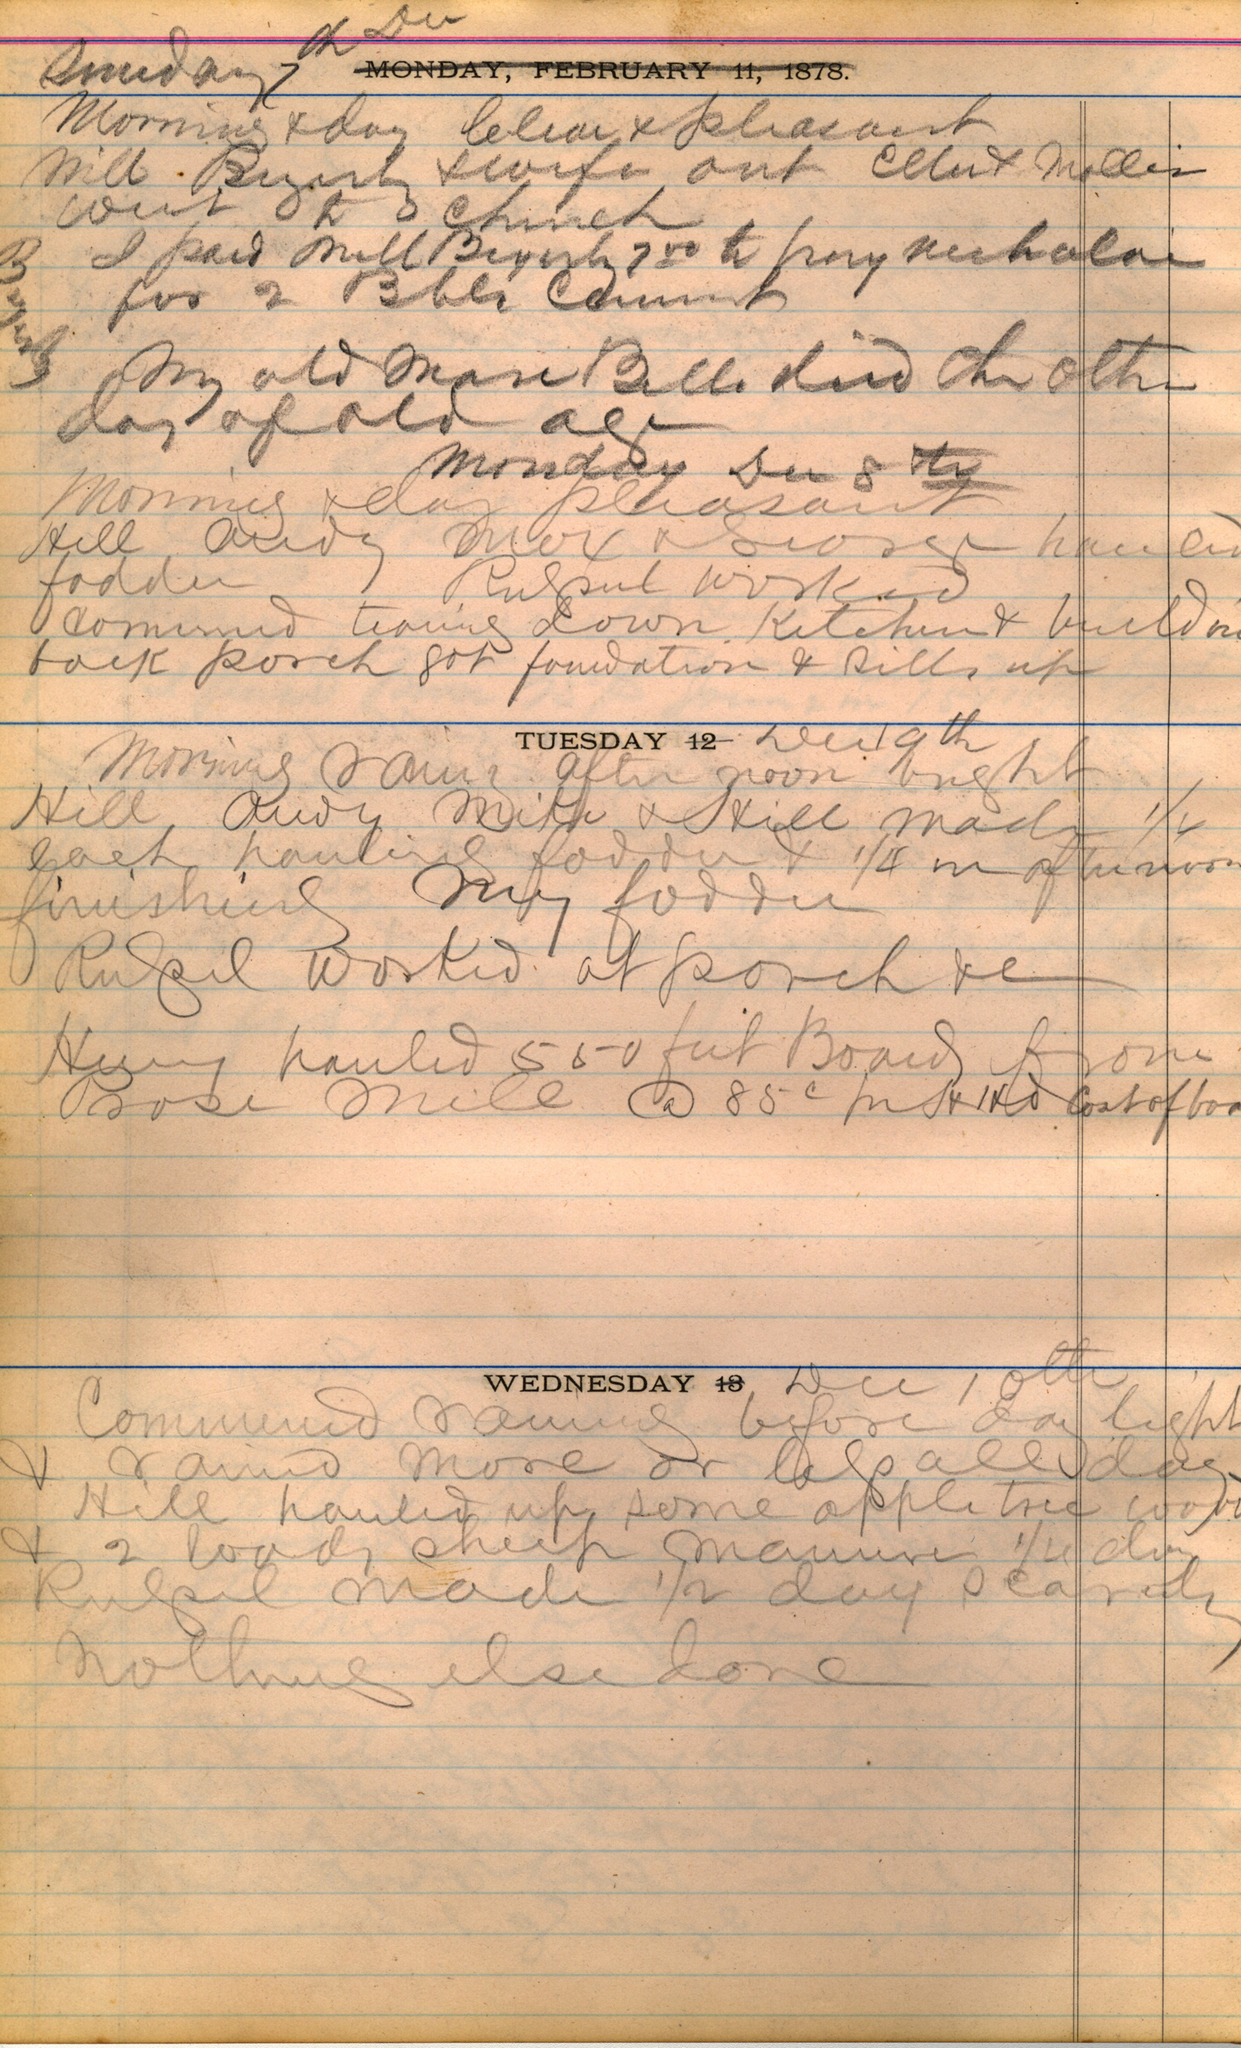 Sunday 7th Dec
MONDAY, FEBRUARY 11, 1878.
Morning & day Clear & pleasant
Will Beyerly & wife out Ella & Mollie
went to Church
Beyerly
I paid Will Beyerly 7 50 to pay
for 2 Bbls Cement
My old Mare Belle died the other
day of old age
Monday Dec 8th
Morning & day pleasant
Hill Andy Mox & George hauled
fodder Russel worked
commenced tearing down Kitchen & building
back porch got foundation & sills up
TUESDAY 12 Dec 9th
Morning rainy after noon bright
Hill Andy Mike & Hill made 1/4
each hauling fodder & 1/4 in afternoon
finishing my fodder
Russel worked at porch &c
Henry hauled 550 feet Boards from
Rose Mill @ 85c per Cost of boa
WEDNESDAY 13 Dec 10th
Commenced raining before day light
& rained more or less all day
Hill hauled up some apple tree wood
& 2 loads sheep manure 1/4 day
Russel made 1/2 day scarcely
nothing else done